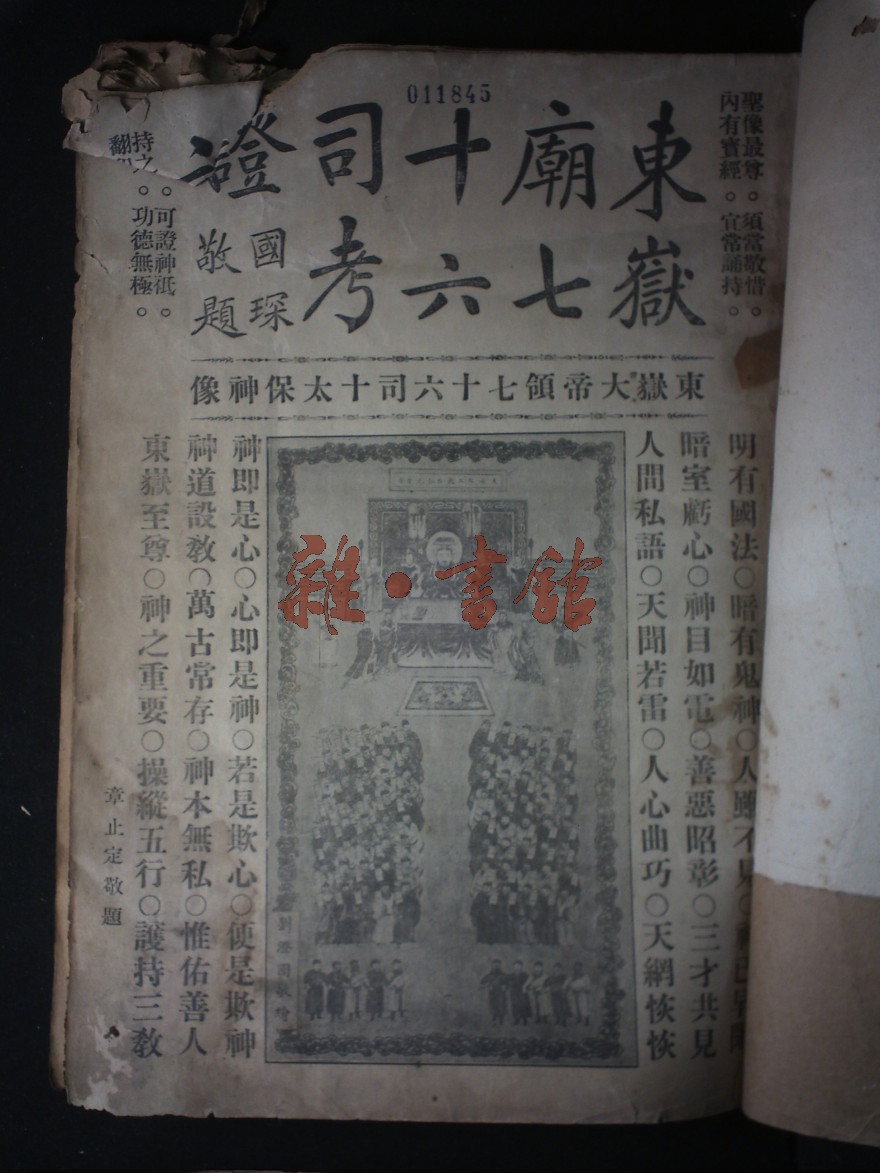 011845
聖像最尊。須當敬惜。
內有寶經。宜常誦持。
東嶽
廟七
十六
司考
證
國琛
敬題
。可證神祇。
持之。功德無極。
翻
東嶽大帝領七十六司十太保神像
明有國法○暗有鬼神○人雖不見
暗室虧心○神目如電○善惡昭彰○三才共見
人間私語○天聞若雷○人心曲巧○天網恢恢
劉澄園敬繪
神即是心○心即是神○若是欺心○便是欺神
神道設教○萬古常存○神本無私○惟佑善人
東嶽至尊○神之重要○操縱五行○護持三教
章止定敬題
雜·書館